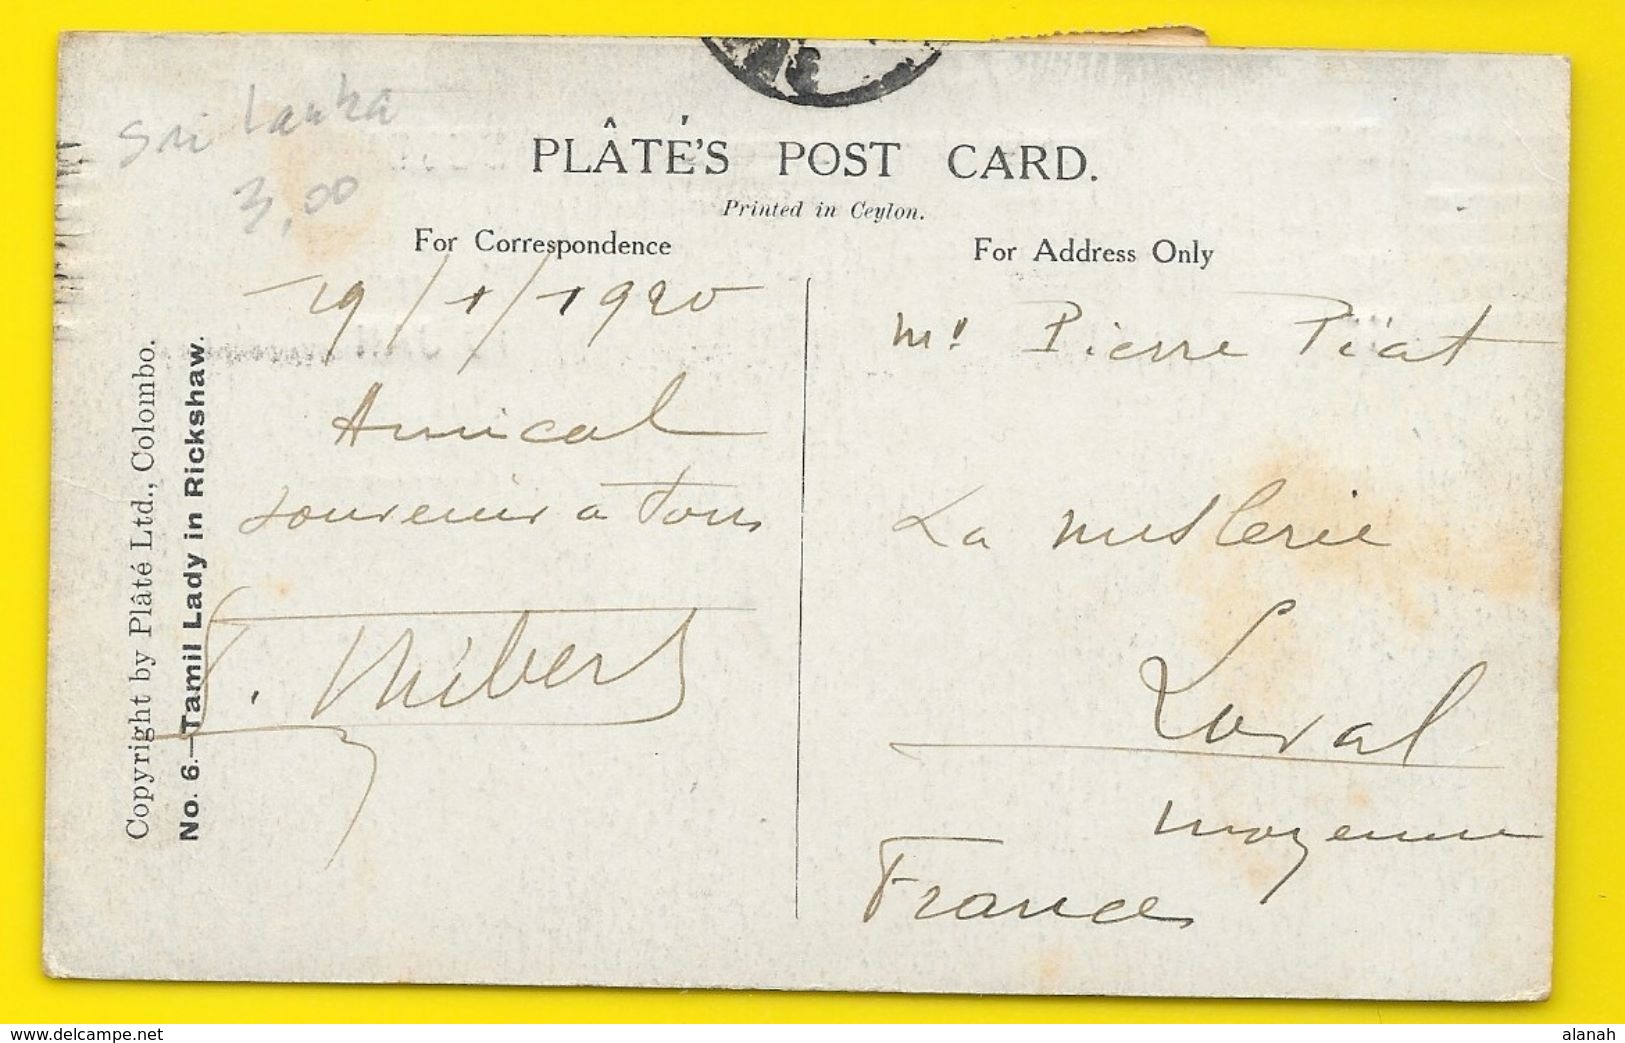 Sri Lanka
3,00
PLÂTÉ'S POST CARD.
Printed in Ceylon.
For Correspondence
For Address Only
19/1/1920
Amical
souvenir a tous
T. Thibert
Mr Pierre Piat
La
Laval
Mayenne
France
Copyright by Plâté Ltd., Colombo.
No. 6.—Tamil Lady in Rickshaw.
www.delcampe.net
alanah